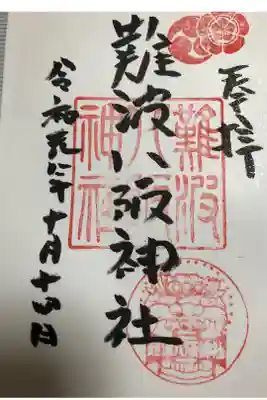 難波八阪神社
難波
八阪
神社
令和元年十月十四日